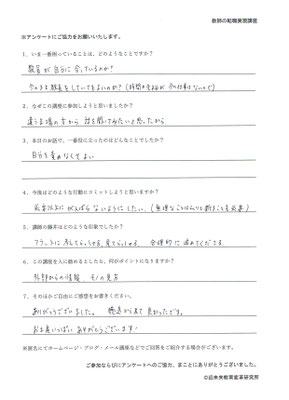 教師の転職実現講座
※アンケートにご協力をお願いいたします。
1、いま一番困っていることは、どのようなことですか？
教員が自分に合っているのか？
今のまま教員をしていてもよいのか？（時間の余裕が
2、なぜこの講座に参加しようと思いましたか？
違う立場の方から 話を聞いてみたいと思ったから
3、本日のお話で、一番役に立ったのはどんなことでしたか？
自分を責めなくてよい
4、今後はどのような行動にコミットしようと思いますか？
がんばらないようにしたい。（無理なことはムリと断ることも必要）
5、講師の藤井はどのような印象でしたか？
フラットに考えてらっしゃる、見てらっしゃる 合理的に進めてくださる
6、この講座を人に勧めるとしたら、何がポイントになりますか？
外部からの情報 モノの見方
7、そのほかご自由にご感想をお書きください。
ありがとうございました。 勇気が出て 良かったです。
ありがとうございます！
※匿名にてホームページ・ブログ・メール講座などでご回答をご紹介する場合がございます。
ご参加ならびにアンケートへのご協力、まことにありがとうございました。
©日本未来教育産業研究所